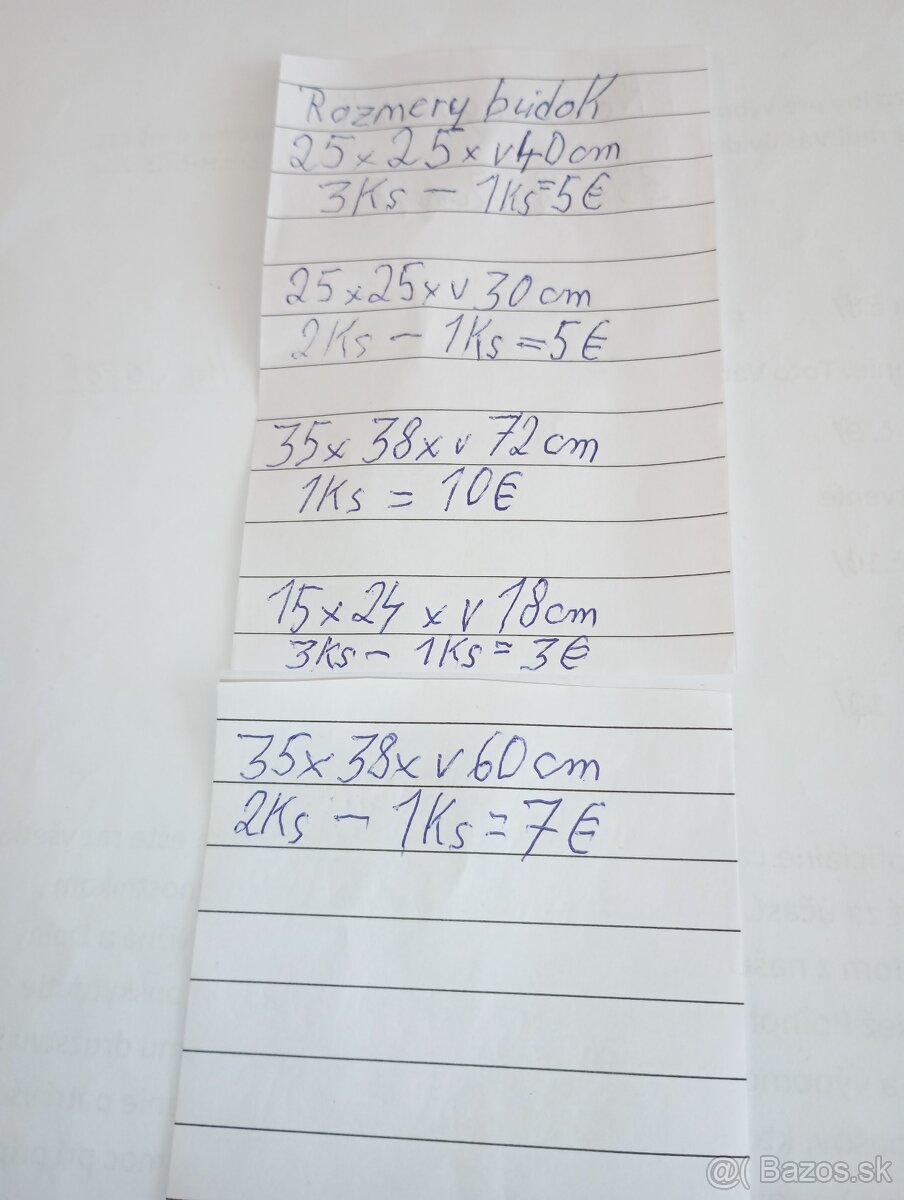 Rozmery búdok
25 x 25 x v 40 cm
3Ks - 1Ks = 5€
25 x 25 x v 30 cm
2Ks - 1Ks = 5€
35 x 38 x v 72 cm
1Ks = 10€
15 x 24 x v 18 cm
3Ks - 1Ks = 3€
35 x 38 x v 60 cm
2Ks - 1Ks = 7€
@( Bazos.sk